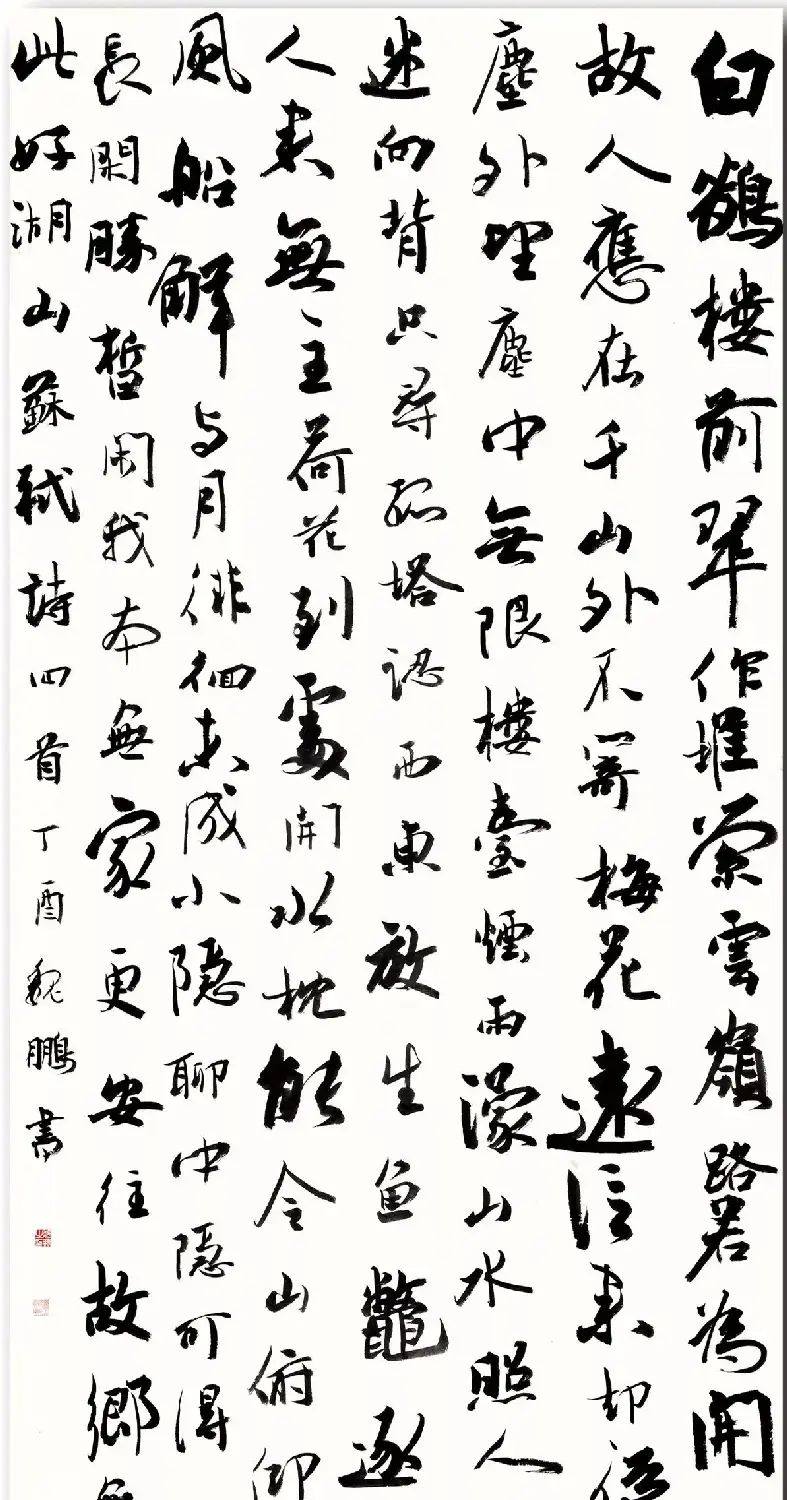 白鶴楼前翠作堆縈雲嶺路若為開
故人應在千山外不寄梅花遠信来却從
塵外望塵中無限樓臺煙雨濛山水照人
迷向背只尋孤塔認西東放生魚鼈逐
人来無主荷花到處開水枕能令山俯仰
風船解与月徘徊未成小隱聊中隱可得
長閑勝暫閑我本無家更安往故鄉無
此好湖山蘇軾詩四首丁酉魏鵬書